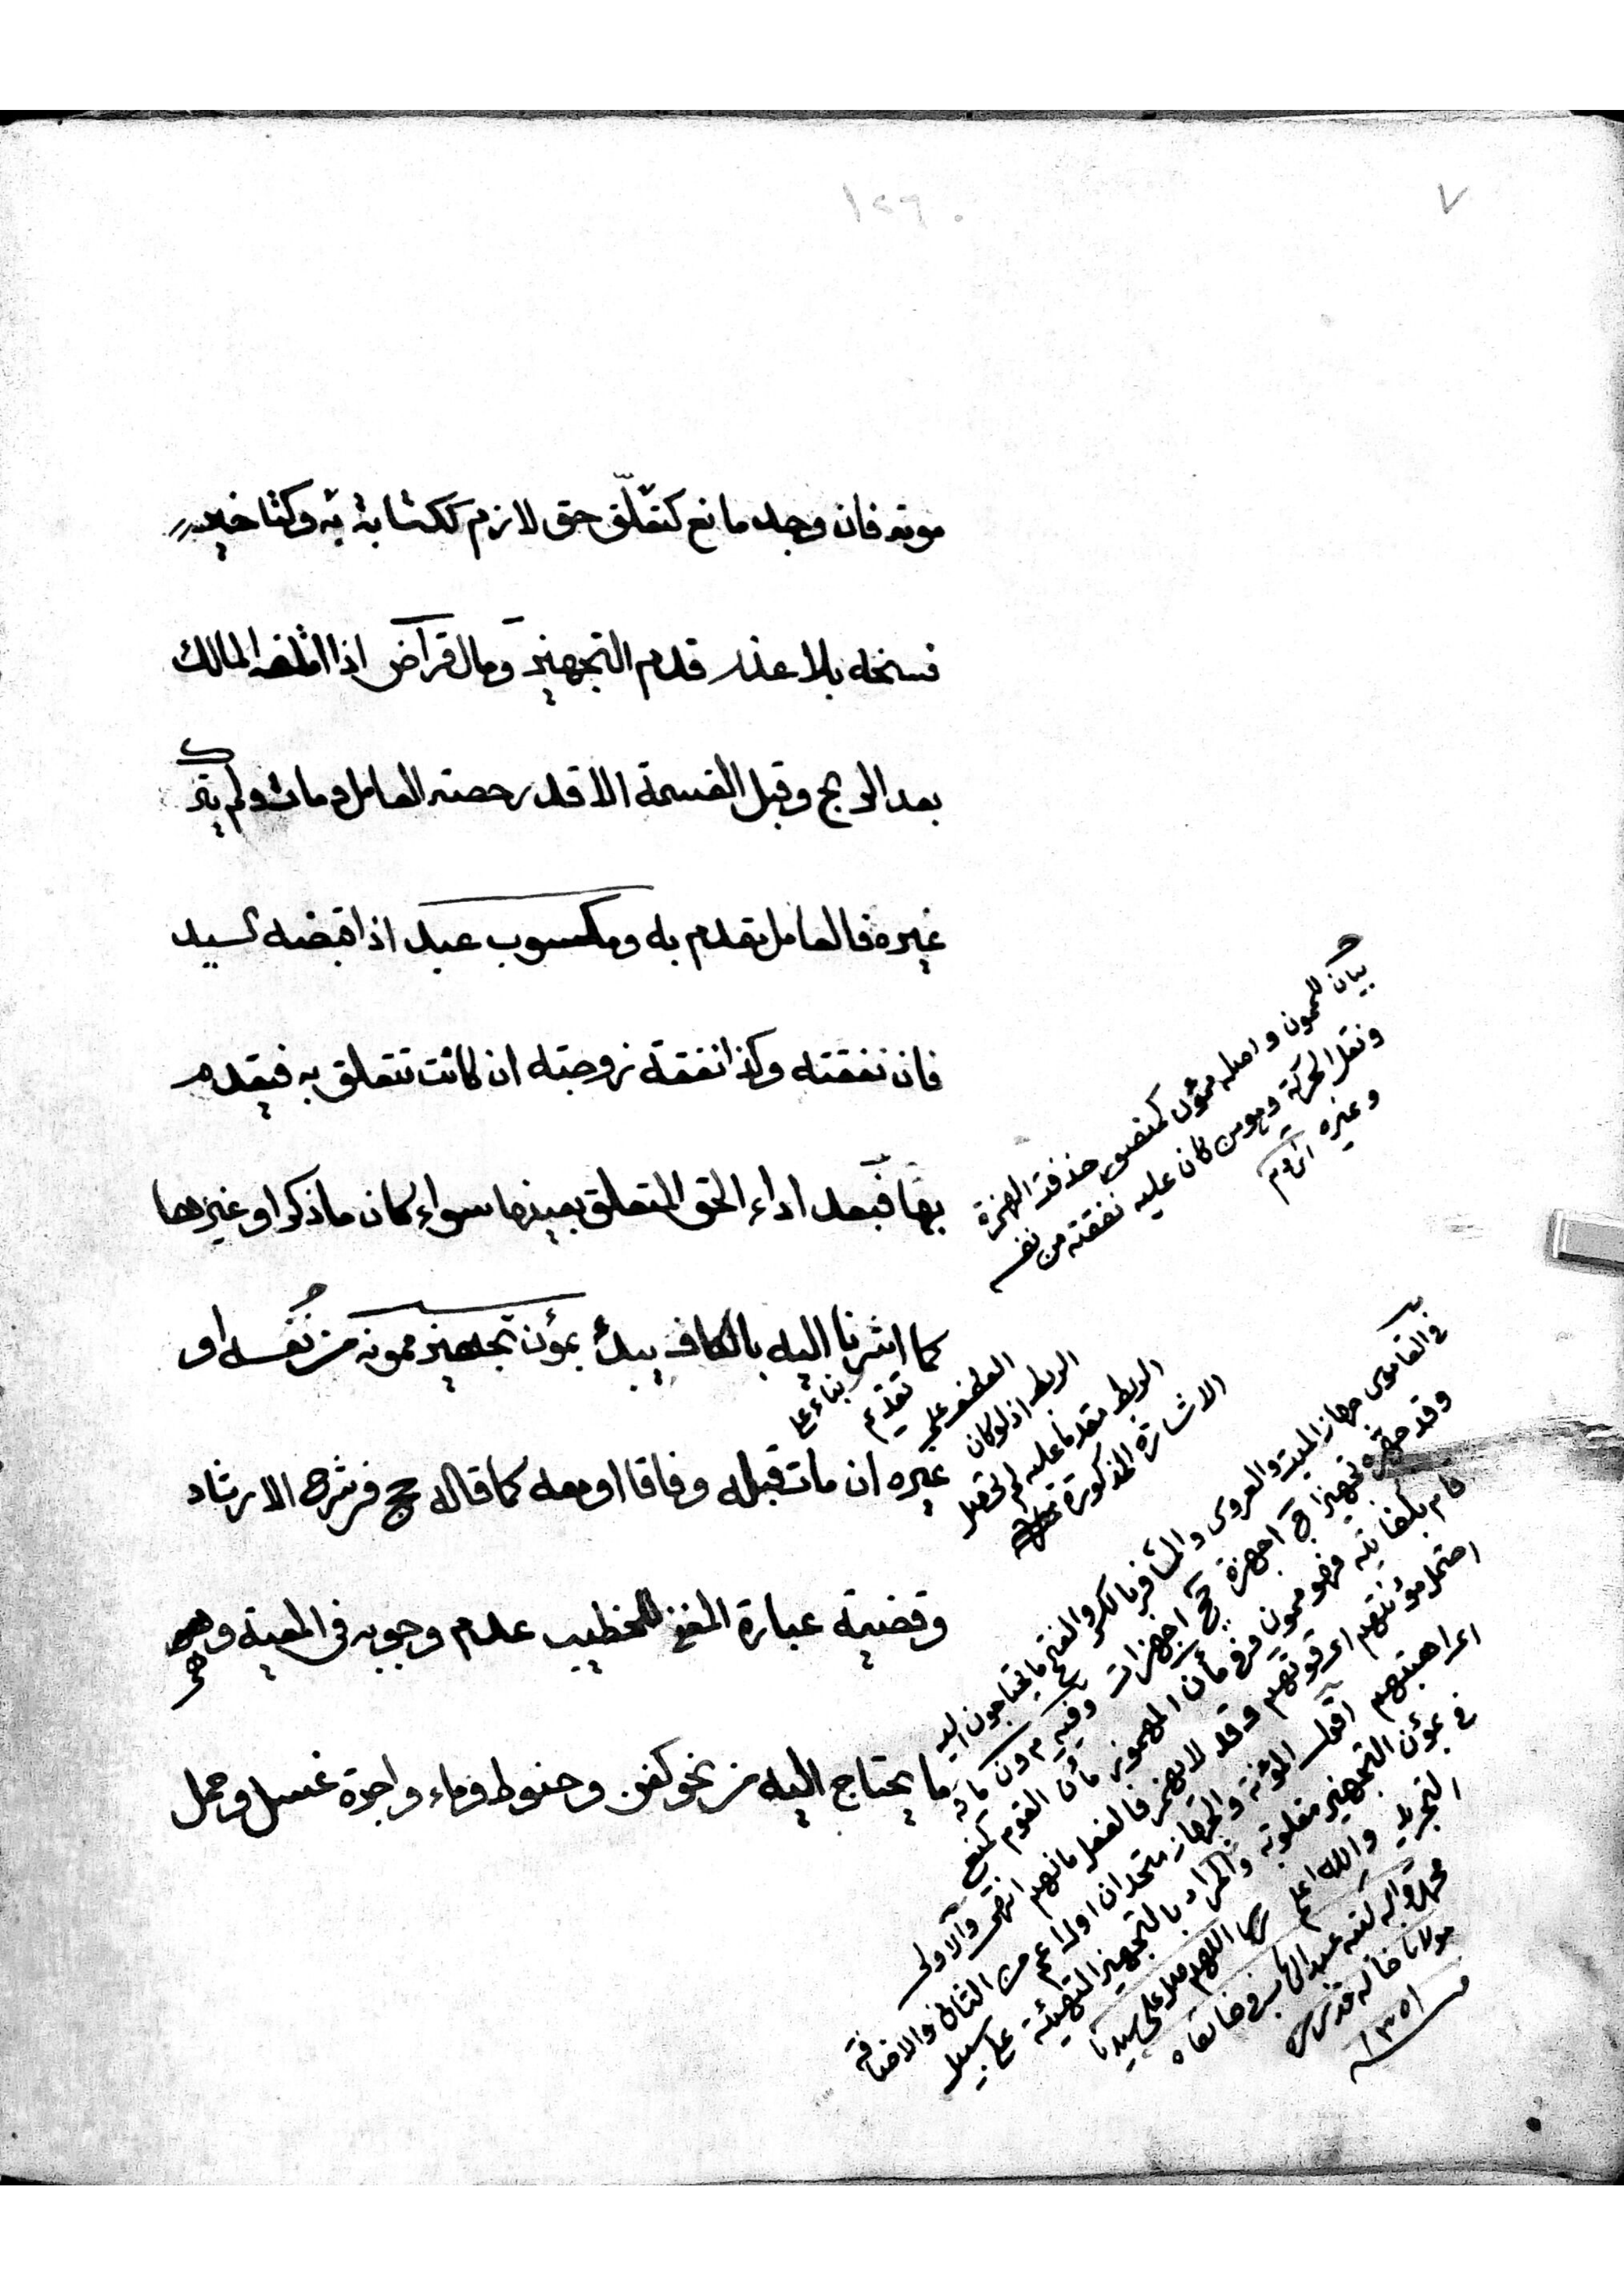 ٧
١٢٦٠
موته فان وجد مانع كتعلّق حق لازم ككتابة به وكتاخير
فسخه بلا عذر قدم التجهيز ومال قراض اذا اتلفه المالك
بعد الربح وقبل القسمة الا قدر حصته العامل ومات ولم يترك
غيره فالعامل يقدم به ومكسوب عبد اذا قبضه سيد
فان نفقته وكذا نفقة زوجته ان كانت تتعلق به فيقدم
بها فبعد اداء الحق المتعلق بعينها سواء كان ما ذكر او غيرها
كما اشرنا اليه بالكاف يبدأ بمؤن تجهيز ممونه من نفسه او
غيره ان مات قبله وفاقا او معه كما قاله حج في شرح الارشاد
وقضية عبارة المغني للخطيب عدم وجوبه في المعية وهي
ما يحتاج اليه من نحو كفن وحنوط وماء واجرة غسل وحمل
بيان للممون واصله مؤون كمنصور حذفة الهمزة
ونقل الحركة وهو من كان عليه نفقته من نفسه
وغيره
بناء على
تقديم
العطف على
الربط اذ لو كان
الربط مقدما عليه لم تحصل
الاشارة المذكورة
في القاموس جهاز الميت والعروس والمسافر بالكسر والفتح ما يحتاجون اليه
وقد جهزه تجهيزا ج اجهزة جج اجهزات وفيه م ون مانه
قام بكفايته فهو ممون وفي مأن المهموز مأن القوم كمنع
احتمل مؤنتهم اى قوتهم وقد لا يهمز فالفعل مانهم انتهى والاولى
اقول المؤنة والجهاز متحدان او الاول اعم من الثاني والاضافة
في مؤن التجهيز مقلوبة والمراد بالتجهيز التهيئة على سبيل
التجريد والله اعلم اللهم صل على سيدنا
محمد وآله كتبه عبد في خانقاه
مولانا خالد قدس سره
١٣٥١